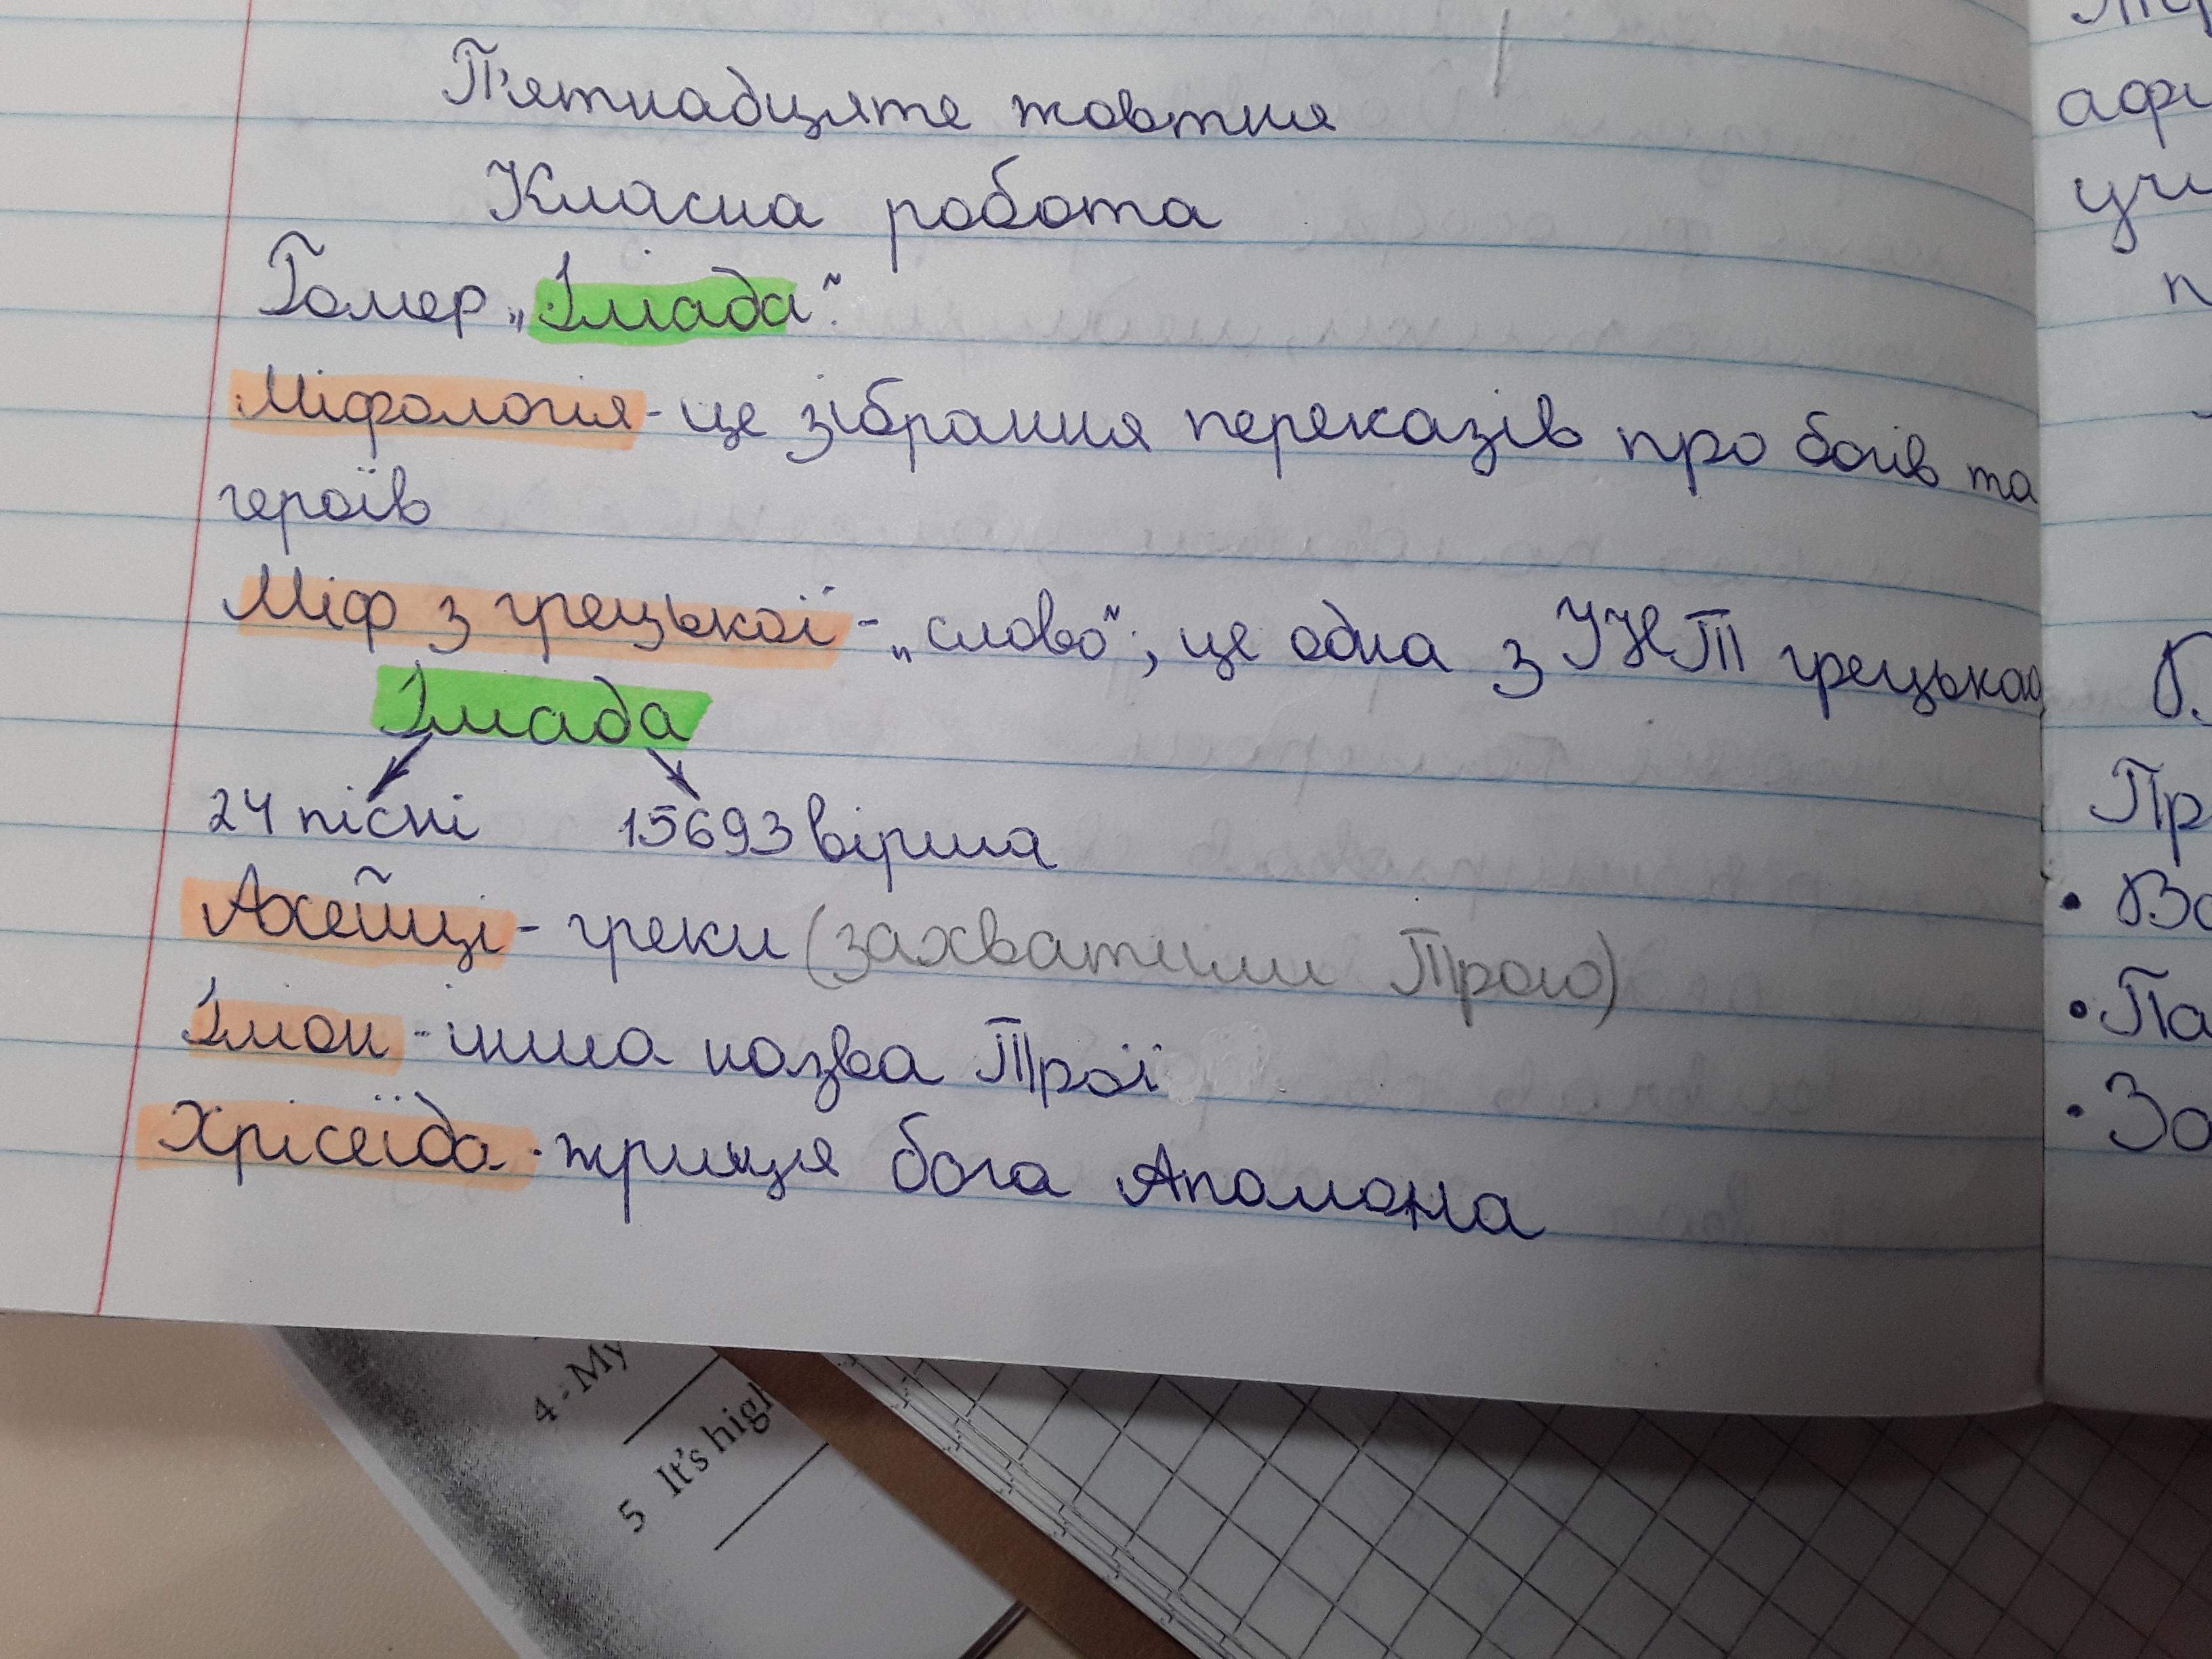 П'ятнадцяте жовтня
Класна робота
Гомер „Іліада".
Міфологія - це зібрання переказів про богів та
героїв
Міф з грецької - „слово"; це одна з УНТ грецької
Іліада
24 пісні 15693 вірша
Ахейці - греки (захватили Трою)
Іліон - інша назва Трої
Хрісеїда - жриця бога Аполлона
афі
Пр
• Во
• Па
• За
4 : My
5 It's high